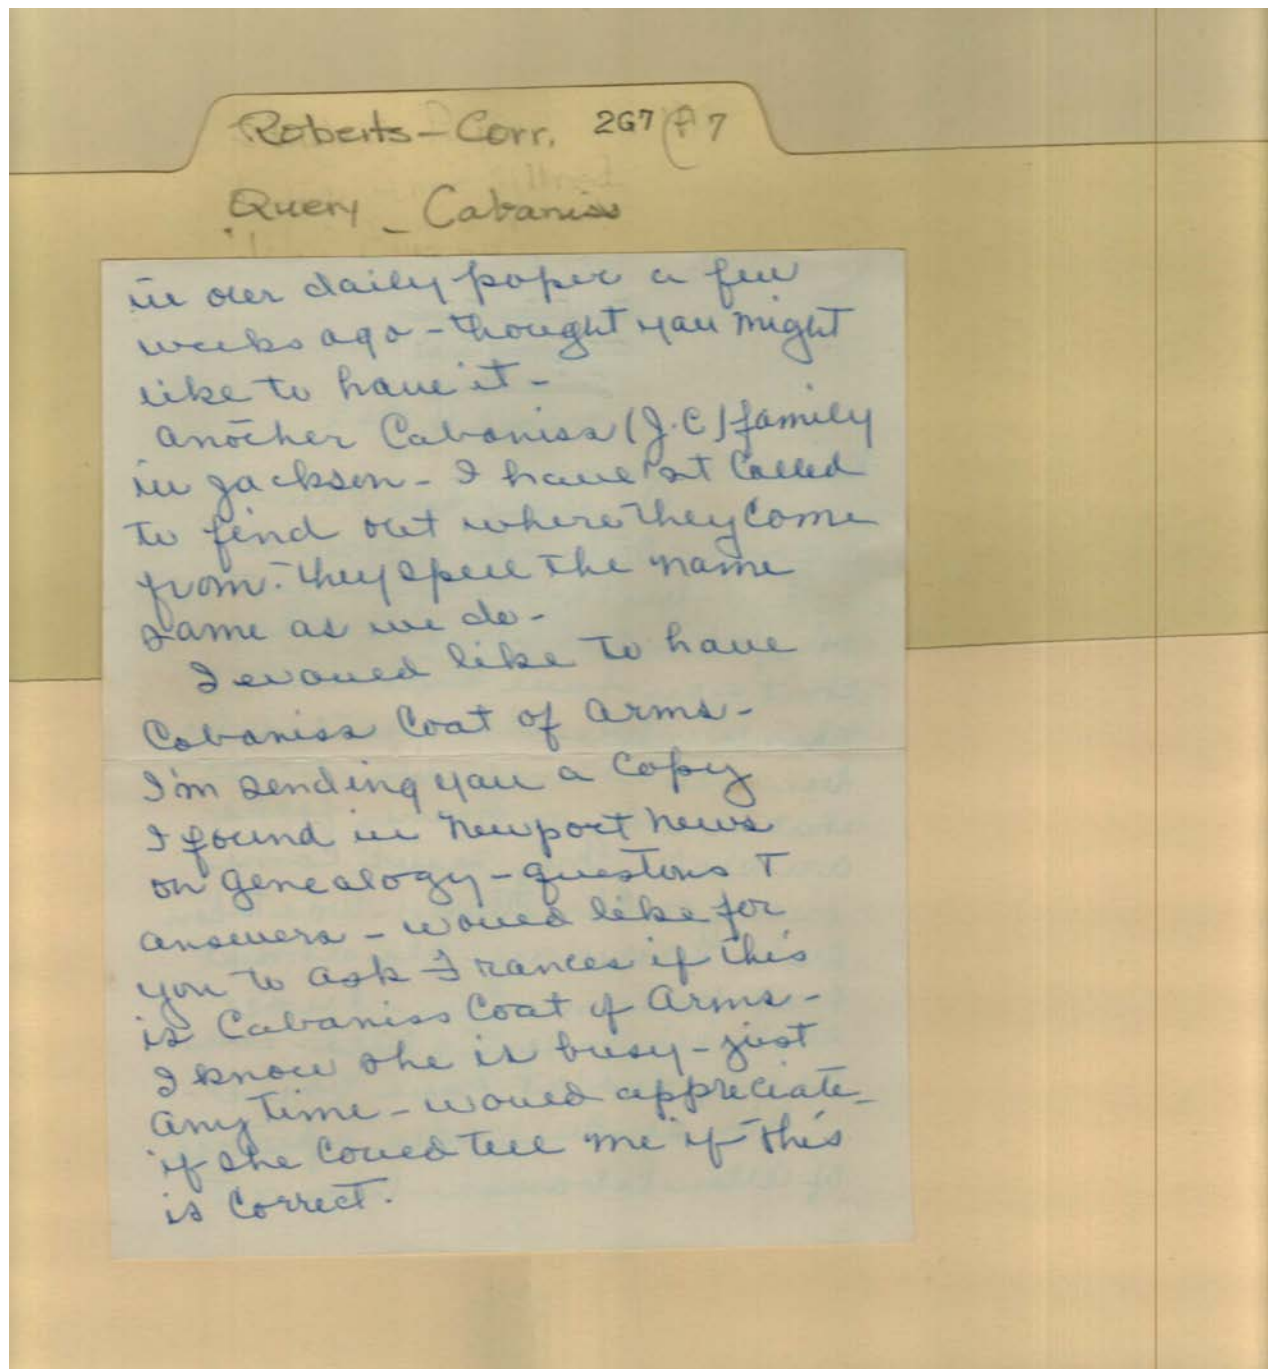 Roberts - Corr. 2G7 (f7
Query - Cabaniss
in our daily paper a few
weeks ago - thought you might
like to have it -
another Cabaniss (J.C) family
in Jackson - I have'nt called
to find out where they come
from. they spell the name
same as we do -
I would like to have
Cabaniss Coat of arms -
I'm sending you a copy
I found in Newport News
on genealogy - questons +
answers - would like for
you to ask Frances if this
is Cabaniss Coat of Arms -
I know she is busy - just
any time - would appreciate
if she could tell me if this
is correct.